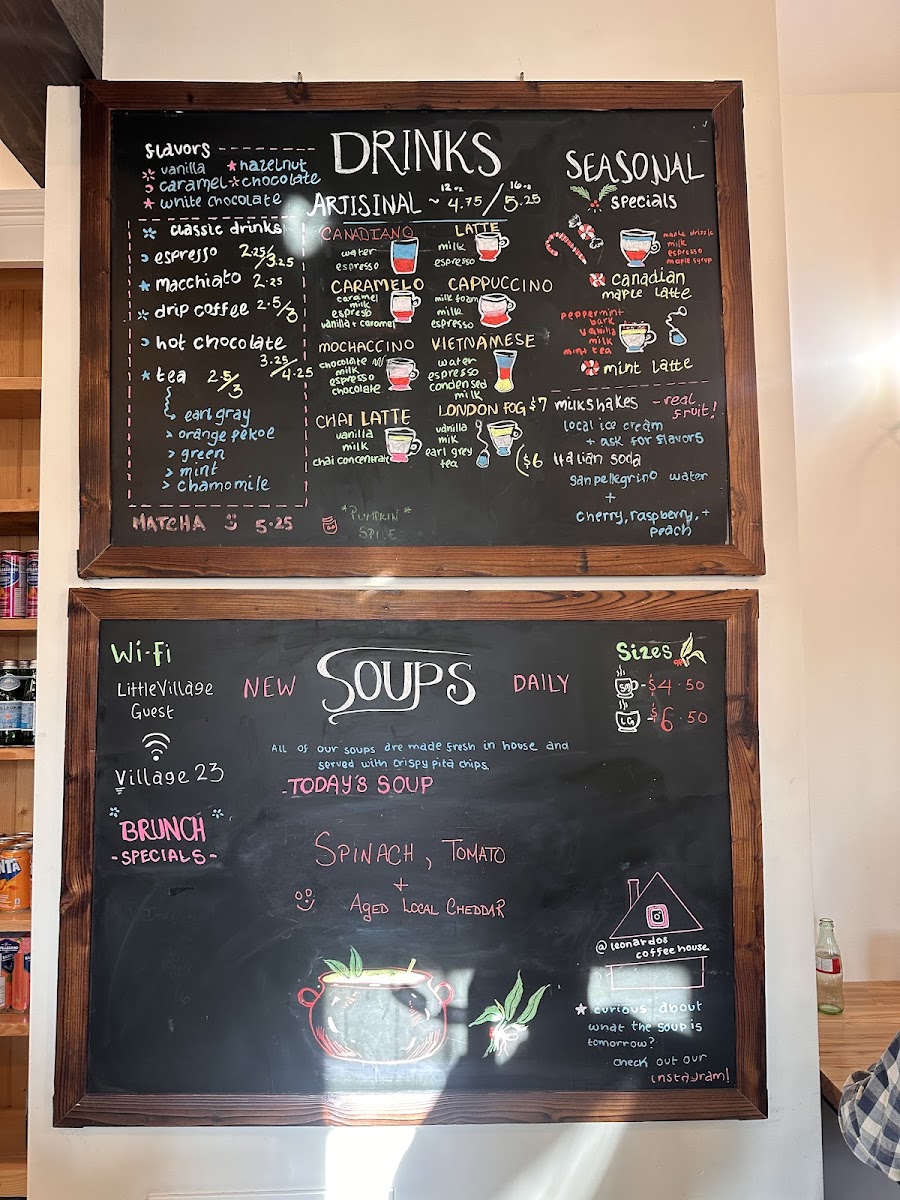 flavors
vanilla
hazelnut
caramel
chocolate
white chocolate
classic drinks
espresso 2.25/3.25
macchiato 2.25
drip coffee 2.5/3
hot chocolate
3.25/4.25
tea 2.5/3
earl gray
> orange pekoe
> green
> mint
> chamomile
MATCHA 5.25
DRINKS
ARTISINAL ~ 12oz 4.75 / 16oz 5.25
CANADIANO
water
espresso
LATTE
milk
espresso
CARAMELO
caramel
milk
espreso
vanilla + caramel
CAPPUCCINO
milk foam
milk
espresso
MOCHACCINO
chocolate
milk
espresso
chocolate
VIETNAMESE
water
espresso
condensed
milk
CHAI LATTE
vanilla
milk
chai concentrate
LONDON FOG
vanilla
milk
earl grey
tea
*PUMPKIN*
SPICE
SEASONAL
specials
maple drizzle
milk
espresso
maple syrup
canadian
maple latte
peppermint
bark
vanilla
milk
mint tea
mint latte
$7 milkshakes - real
fruit!
local ice cream
+ ask for flavors
$6 Italian soda
sanpellegrino water
+
cherry, raspberry, +
peach
Wi-Fi
LittleVillage
Guest
Village 23
BRUNCH
- SPECIALS -
NEW SOUPS DAILY
All of our soups are made fresh in house and
served with crispy pita chips.
-TODAY'S SOUP
SPINACH, TOMATO
+
AGED LOCAL CHEDDAR
Sizes
SM - $4.50
LG - $6.50
@leonardos
coffeehouse
curious about
what the soup is
tomorrow?
check out our
instagram!